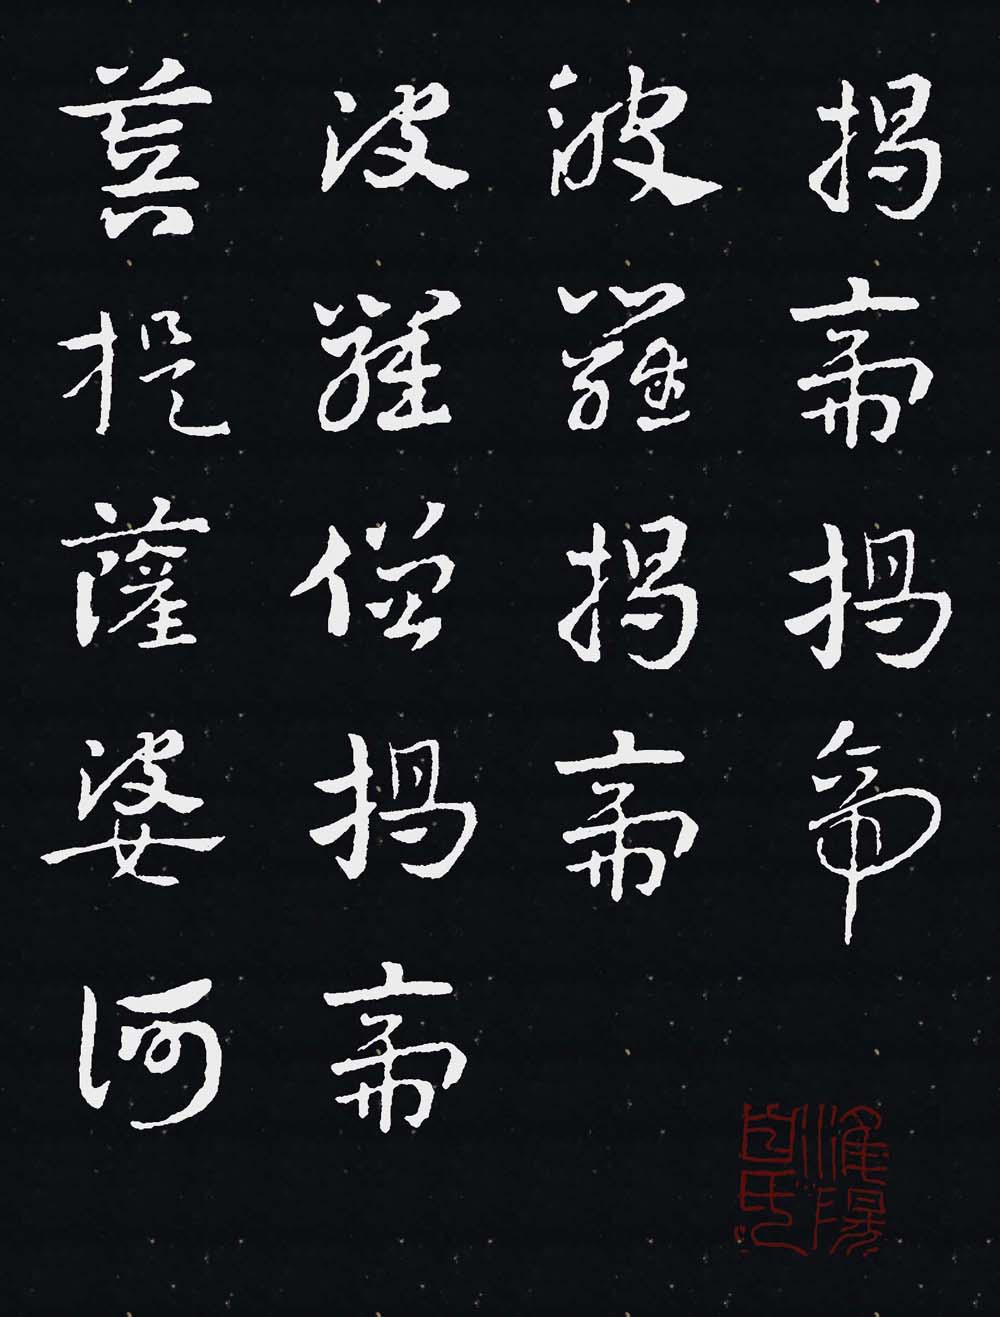 揭帝揭帝
般羅揭帝
波羅僧揭帝
菩提薩婆訶